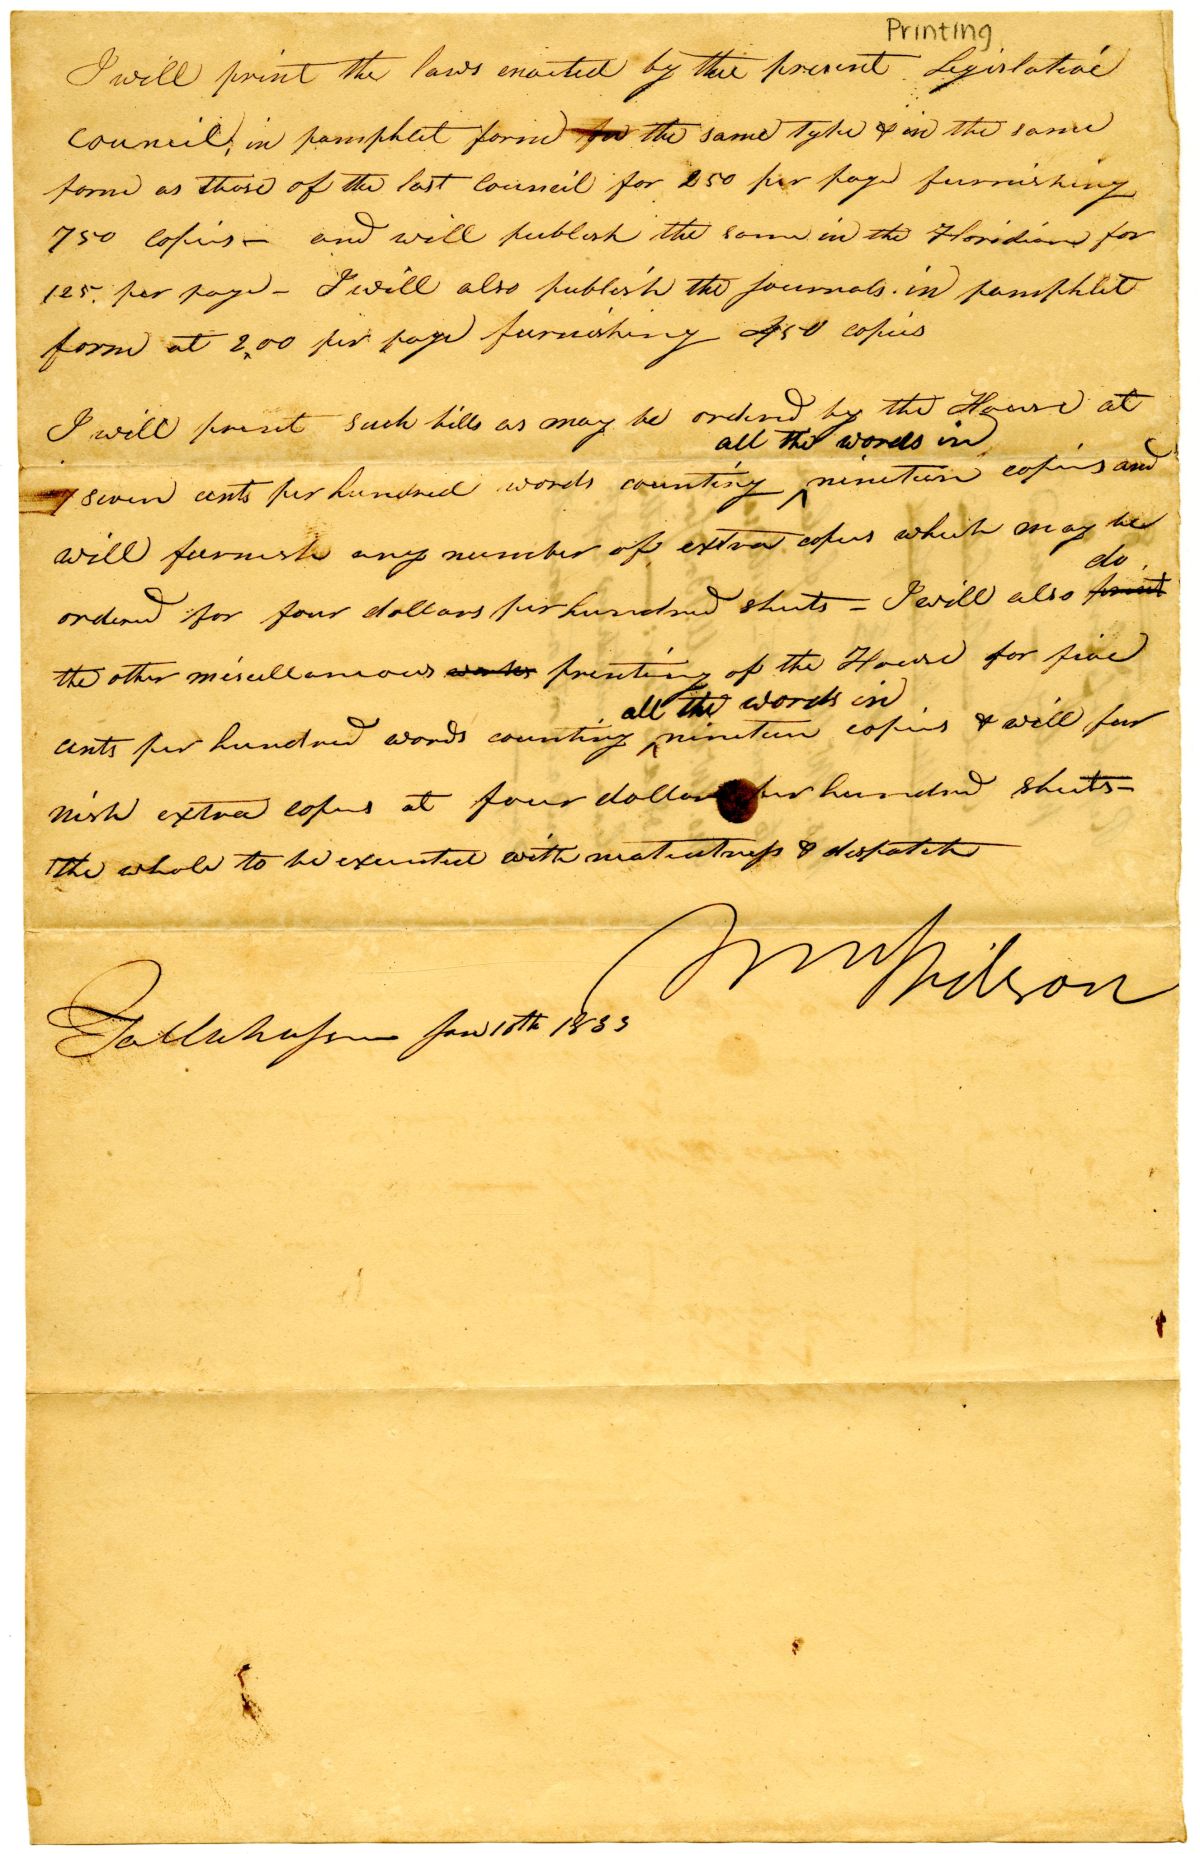 Printing
I will print the laws enacted by the present Legislative
Council, in pamphlet form for the same type & in the same
form as those of the last Council for 250 per page furnishing
750 copies – and will publish the same in the Floridian for
125. per page – I will also publish the journals in pamphlet
form at 2,00 per page furnishing 450 copies
I will print such bills as may be ordered by the House at
all the words in
7 seven cents per hundred words counting ^ nineteen copies and
will furnish any number of extra copies which may be
do
ordered for four dollars per hundred sheets – I will also print
the other miscellaneous works printing of the House for five
all the words in
cents per hundred words counting ^ nineteen copies & will fur
nish extra copies at four dollars per hundred sheets –
the whole to be executed with neatness & dispatch
Wm Wilson
Tallahassee Jan 10th 1833